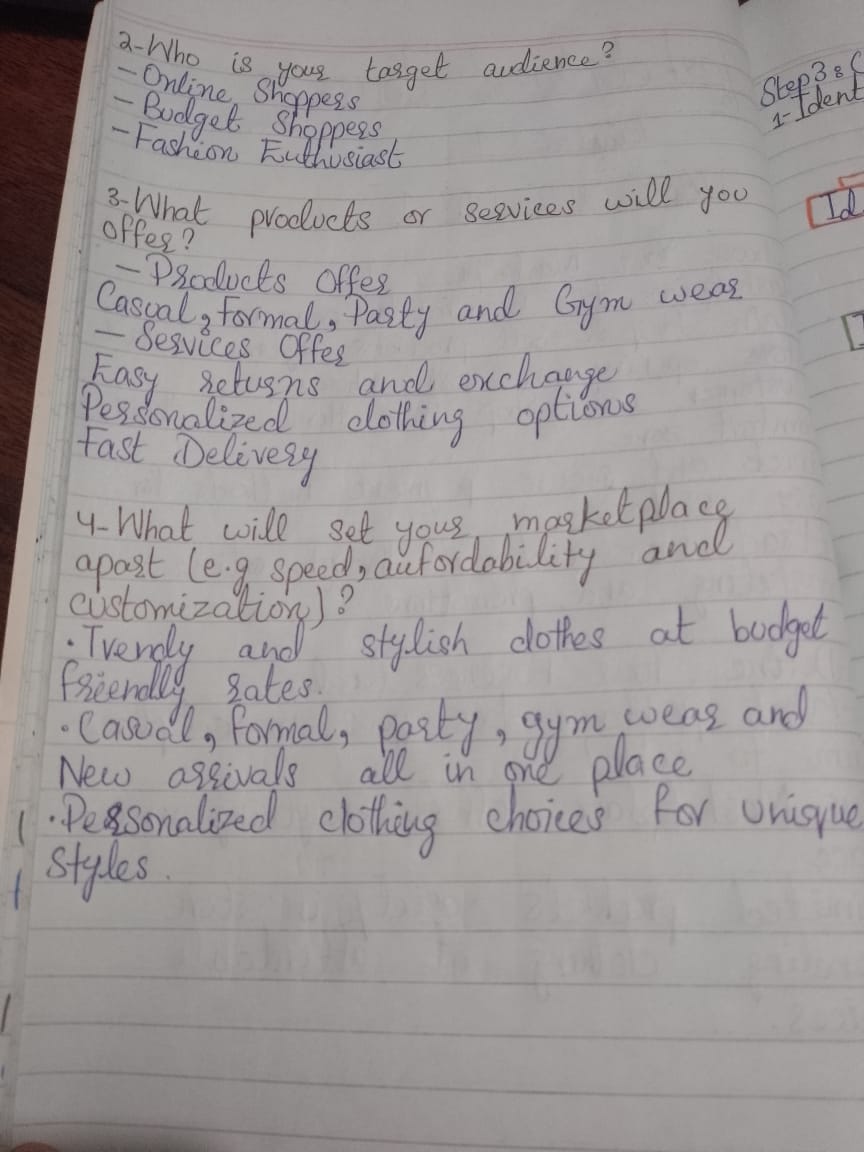 2-Who is your target audience?
- Online Shoppers
- Budget Shoppers
- Fashion Euthusiast
3-What products or services will you
offer?
- Products Offer
Casual, Formal, Party and Gym wear
- Services Offer
Easy returns and exchange
Personalized clothing options
Fast Delivery
4-What will set your marketplace
apart (e.g speed, aufordability and
customization)?
• Trendy and stylish clothes at budget
friendly rates.
• Casual, formal, party, gym wear and
New arrivals all in one place
• Personalized clothing choices for unique
styles.
Step 3: C
1- Ident
Id